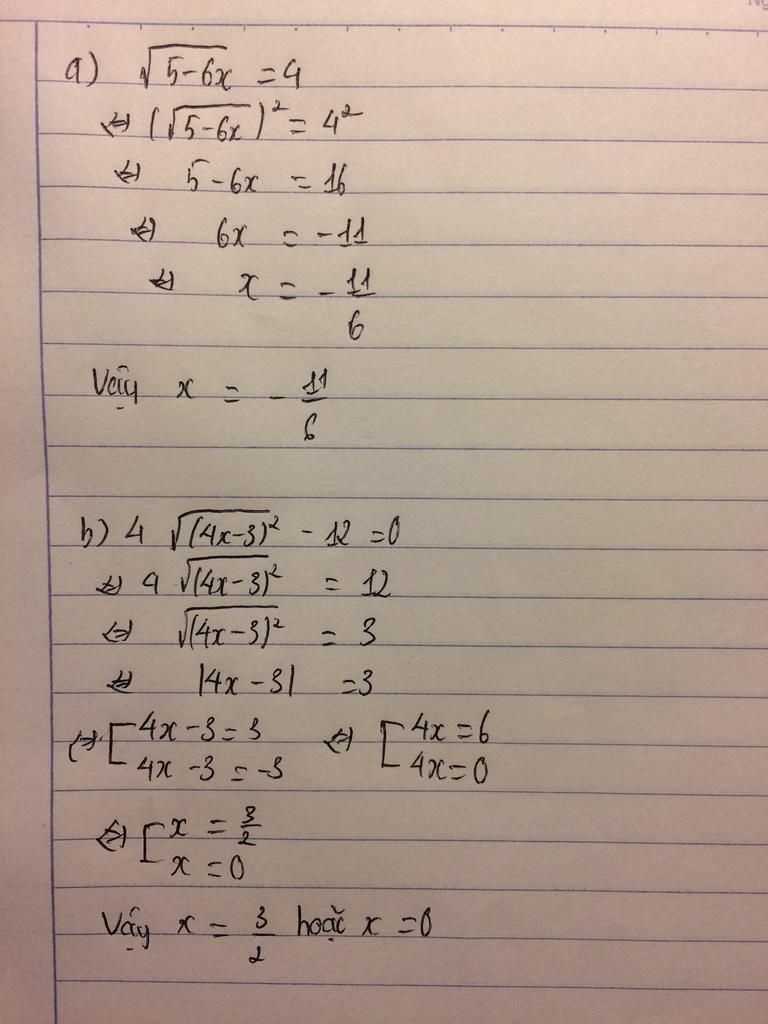 a) √(5-6x) = 4
⇔ (√(5-6x))² = 4²
⇔ 5-6x = 16
⇔ 6x = -11
⇔ x = -11/6
Vậy x = -11/6
b) 4 √(4x-3)² - 12 = 0
⇔ 4 √(4x-3)² = 12
⇔ √(4x-3)² = 3
⇔ |4x-3| = 3
⇔ [4x-3 = 3 ⇔ [4x = 6
4x-3 = -3 4x = 0
⇔ [x = 3/2
x = 0
Vậy x = 3/2 hoặc x = 0